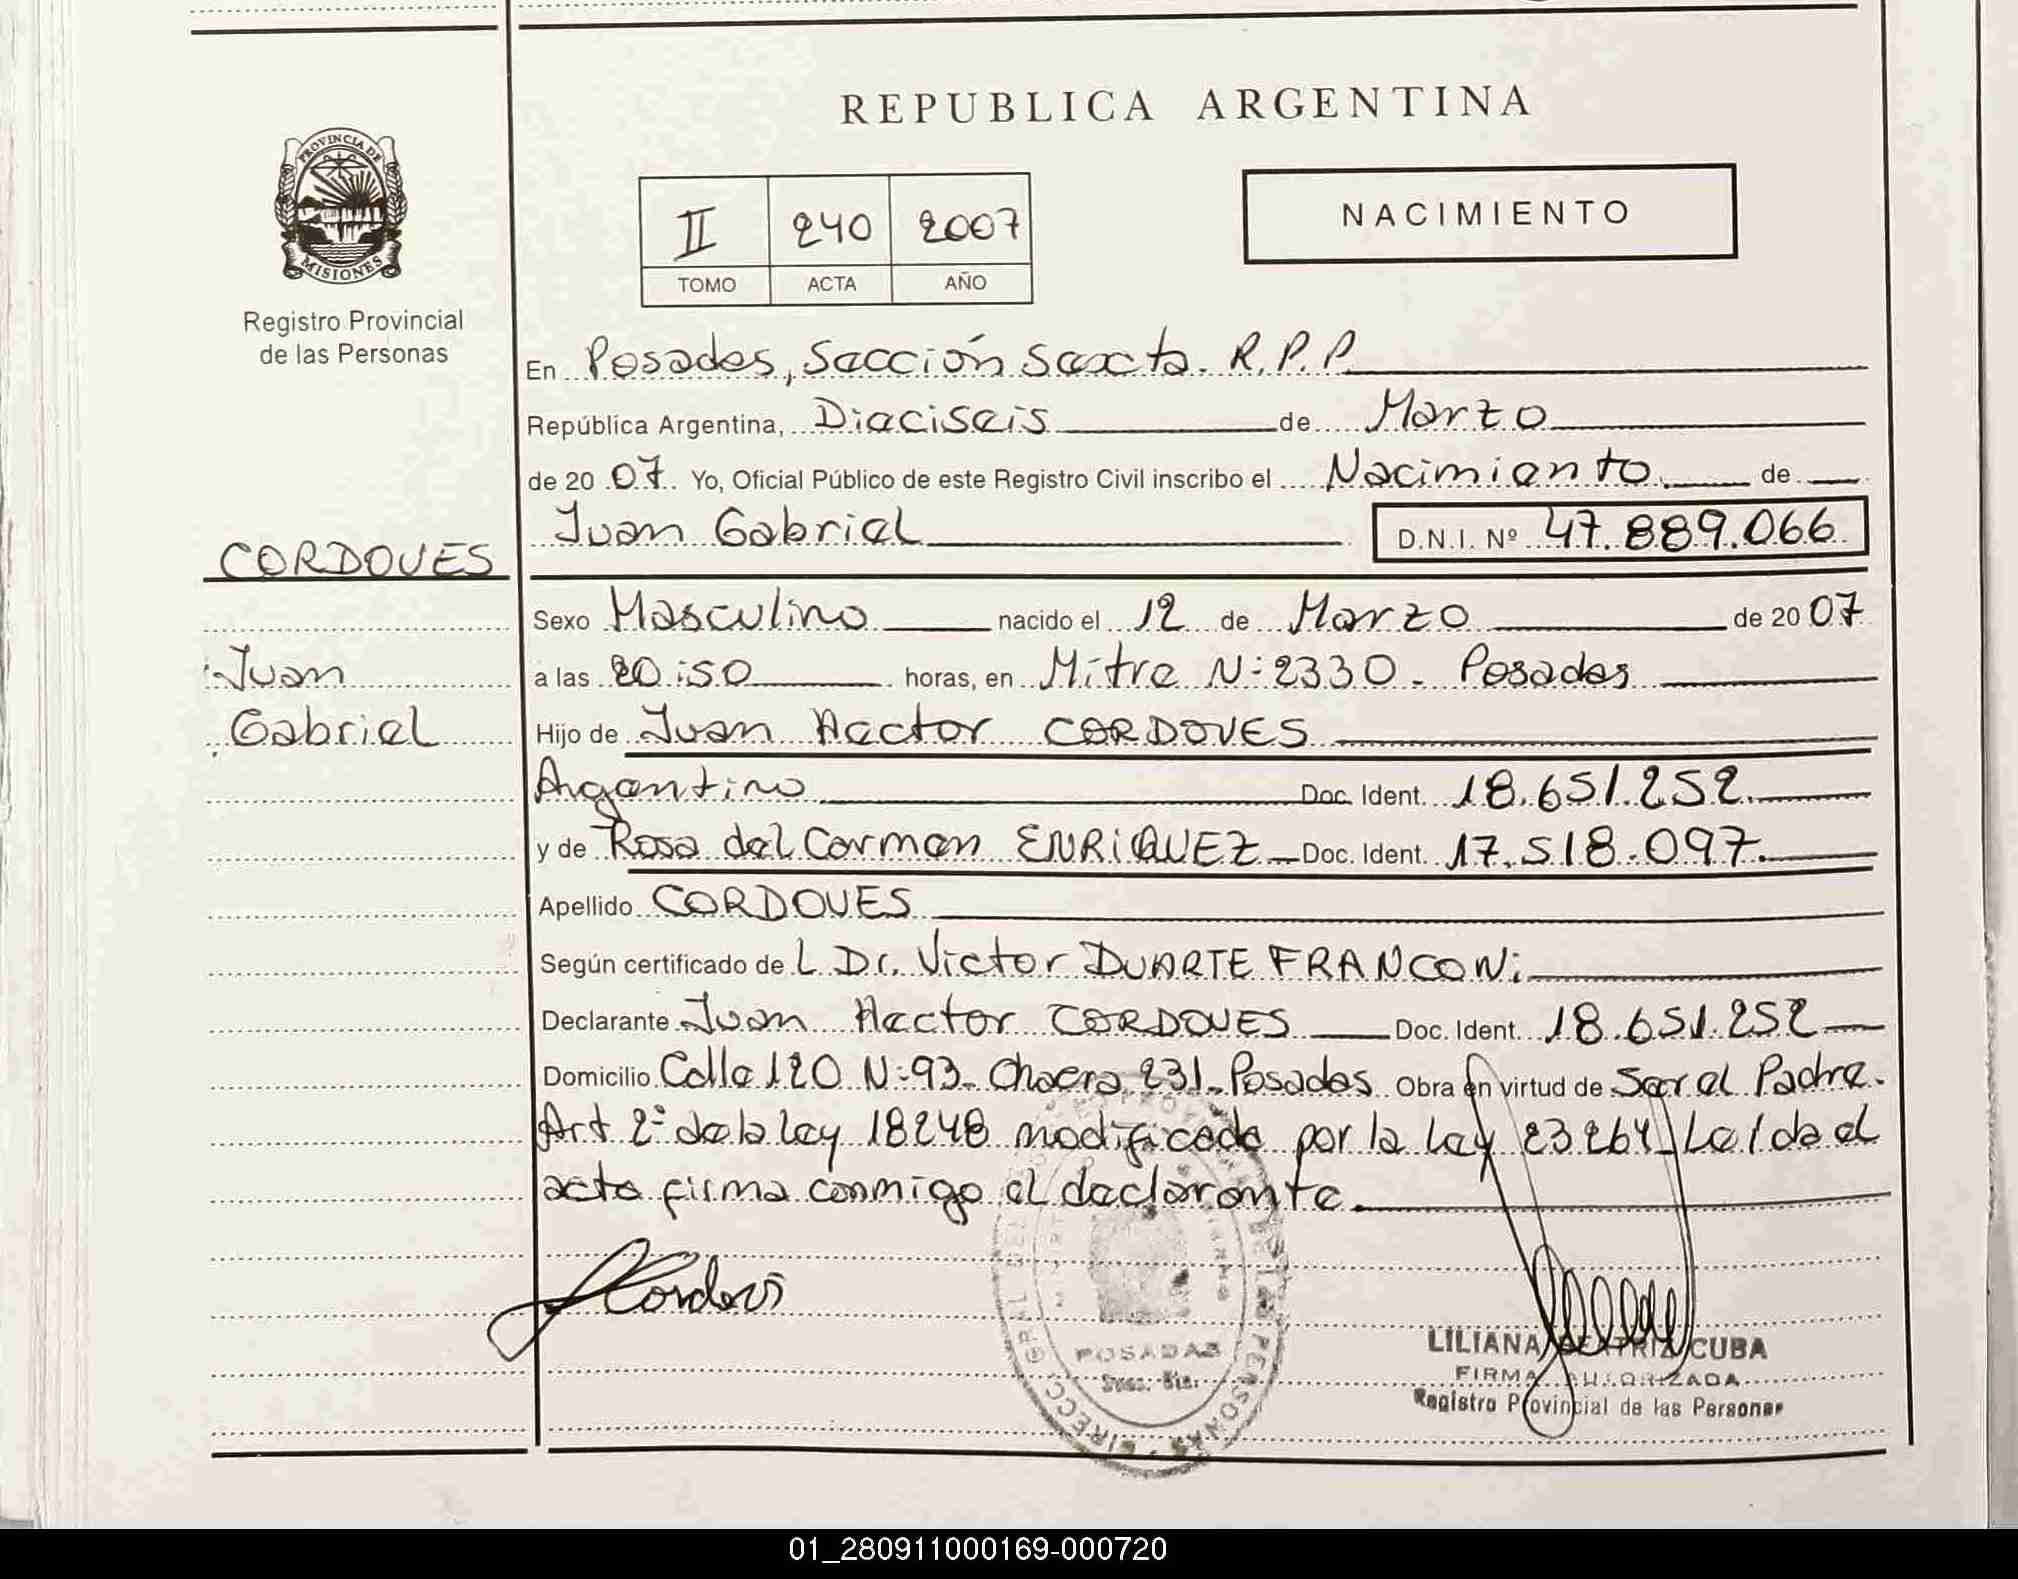 REPUBLICA ARGENTINA
PROVINCIA DE
MISIONES
Registro Provincial
de las Personas
II 240 2007
TOMO ACTA AÑO
NACIMIENTO
En Posadas, Sección Sexta. R.P.P.
República Argentina, Dieciseis de Marzo
de 20 07. Yo, Oficial Público de este Registro Civil inscribo el Nacimiento de
Juan Gabriel D.N.I. Nº 47.889.066
CORDOVES
Sexo Masculino nacido el 12 de Marzo de 20 07
Juan
a las 20:50 horas, en Mitre N:2330. Posadas
Gabriel
Hijo de Juan Hector CORDOVES
Argentino Doc. Ident. 18.651.252.
y de Rosa del Carmen ENRiQUEZ Doc. Ident. 17.518.097.
Apellido CORDOVES
Según certificado de L Dr. Victor DUARTE FRANCONi
Declarante Juan Hector CORDOVES Doc. Ident. 18.651.252
Domicilio Calle 120 N:93. Chacra 231. Posadas Obra en virtud de Ser el Padre.
Art 2º de la ley 18248 modificada por la ley 23264. Leída el
acta firma conmigo el declarante.
POSADAS
LILIANA BEATRIZ CUBA
FIRMA AUTORIZADA
Registro Provincial de las Personas
01_280911000169-000720